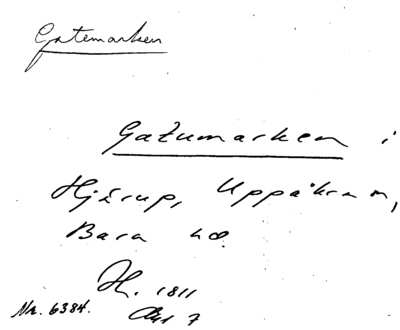 Gatemarken
Gatumarken i
Hjärup, Uppåkra sn,
Bara hd.
H. 1811
Nr. 6384. Akt 7